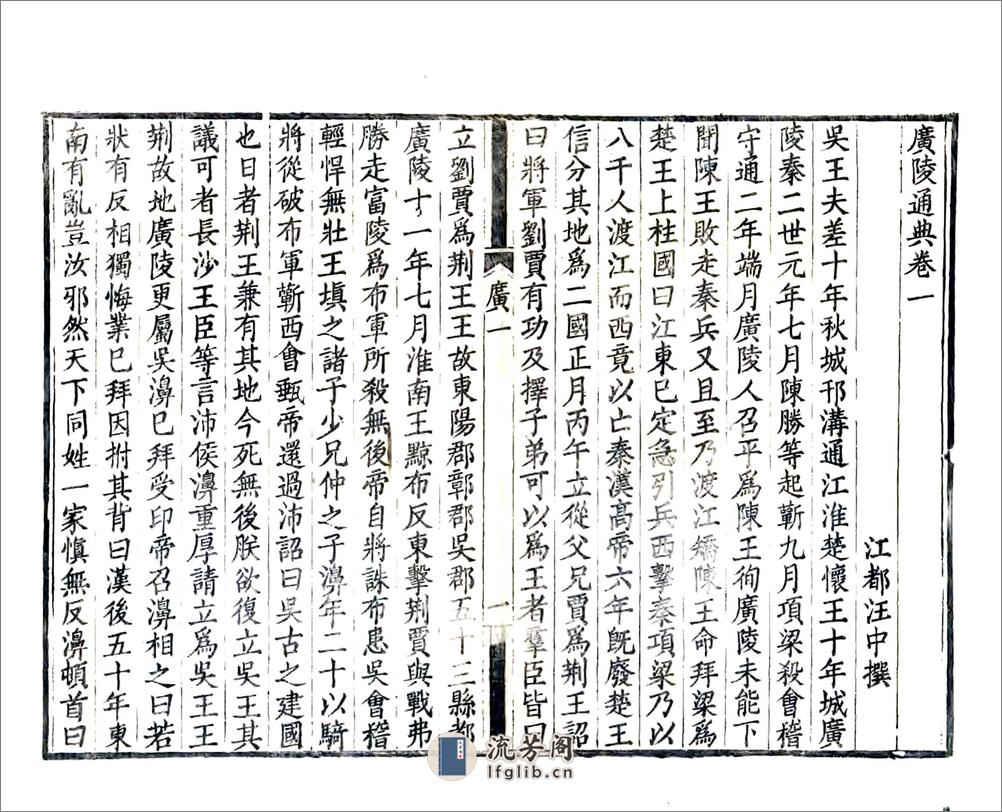 廣陵通典卷一
江都汪中撰
吳王夫差十年秋城邗溝通江淮楚懷王十年城廣
陵秦二世元年七月陳勝等起蘄九月項梁殺會稽
守通二年端月廣陵人召平爲陳王徇廣陵未能下
聞陳王敗走秦兵又且至乃渡江矯陳王命拜梁爲
楚王上柱國曰江東已定急引兵西擊秦項梁乃以
八千人渡江而西竟以亡秦漢高帝六年旣廢楚王
信分其地爲二國正月丙午立從父兄賈爲荆王詔
曰將軍劉賈有功及擇子弟可以爲王者羣臣皆曰
廣一
一
立劉賈爲荆王王故東陽郡鄣郡吳郡五十三縣都
廣陵十一年七月淮南王黥布反東擊荆賈與戰弗
勝走富陵爲布軍所殺無後帝自將誅布患吳會稽
輕悍無壯王填之諸子少兄仲之子濞年二十以騎
將從破布軍蘄西會甀帝還過沛詔曰吳古之建國
也日者荆王兼有其地今死無後朕欲復立吳王其
議可者長沙王臣等言沛侯濞重厚請立爲吳王王
荆故地廣陵更屬吳濞巳拜受印帝召濞相之曰若
狀有反相獨悔業巳拜因拊其背曰漢後五十年東
南有亂豈汝邪然天下同姓一家愼無反濞頓首曰
流芳阁
lfglib.cn